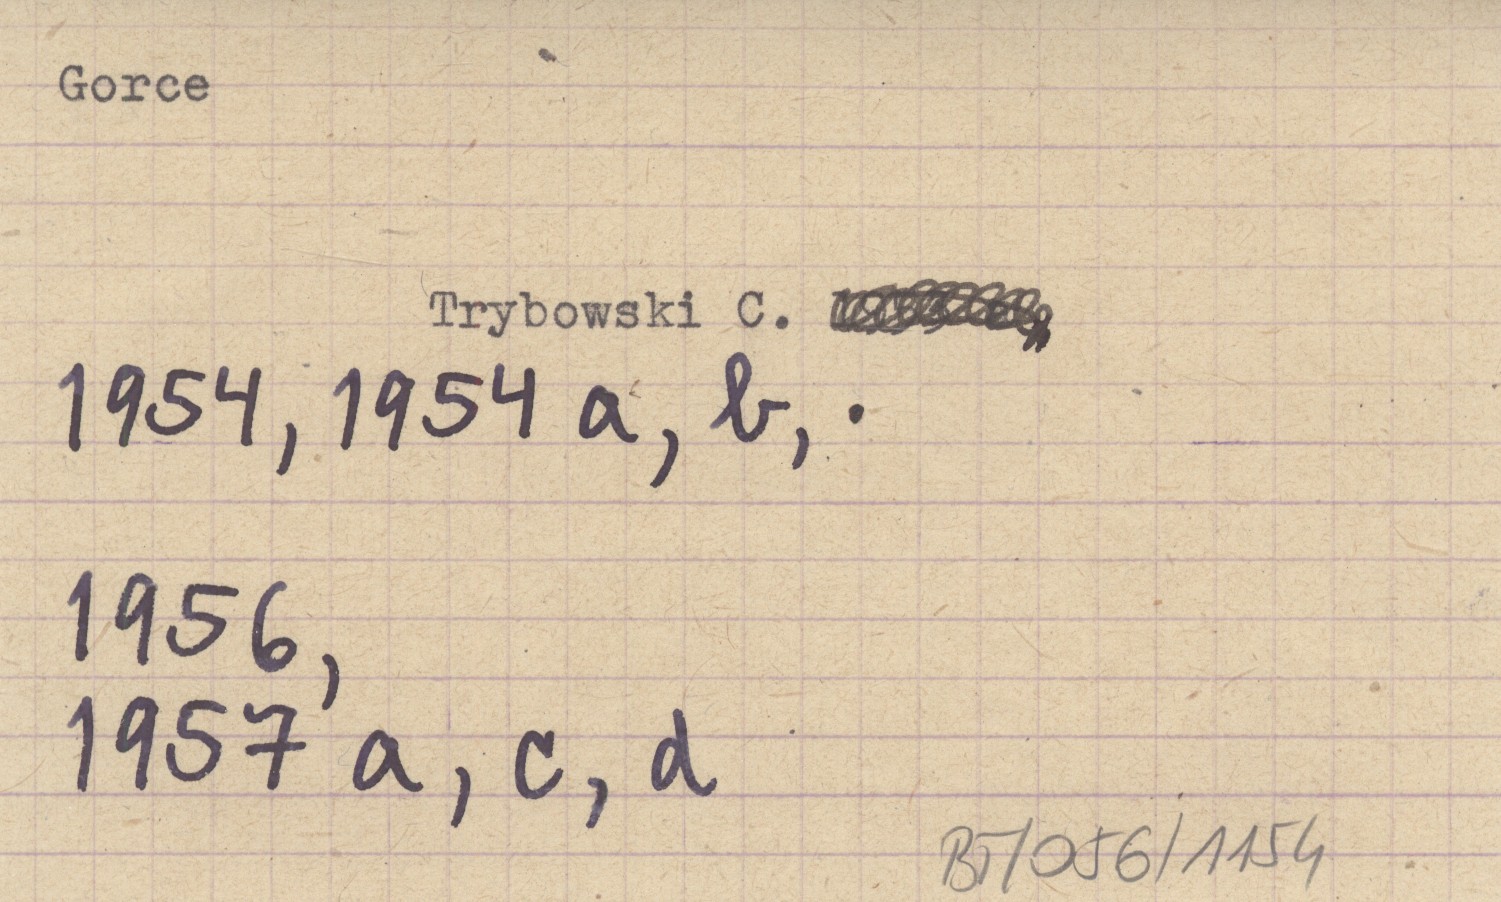 Gorce
Trybowski C.
1954, 1954 a, b, .
1956,
1957 a, c, d
BT/056/1154